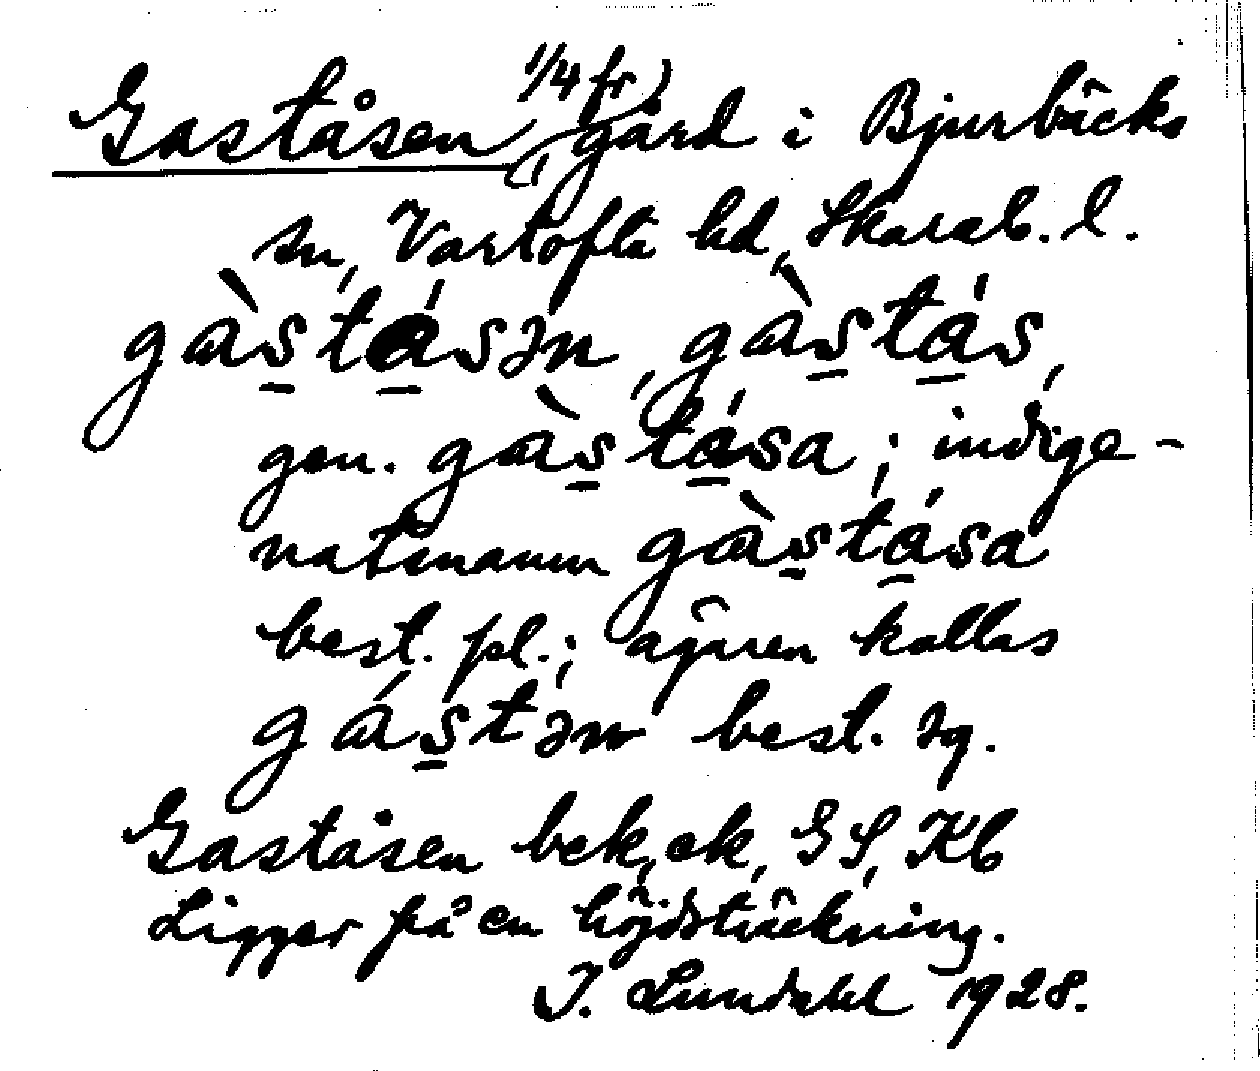 Gaståsen, (1/4 fr) gård i Bjurbäcks
sn, Vartofta hd, Skarab. l.
gàs̱tá̱sən, gàs̱tá̱s,
gen. gàs̱tá̱sa; indige-
natsnamn gàs̱tá̱sa
best. pl.; ägaren kallas
gás̱tən best. sg.
Gaståsen bek, ek, GS, Kb
Ligger på en höjdsträckning.
I. Lundahl 1928.